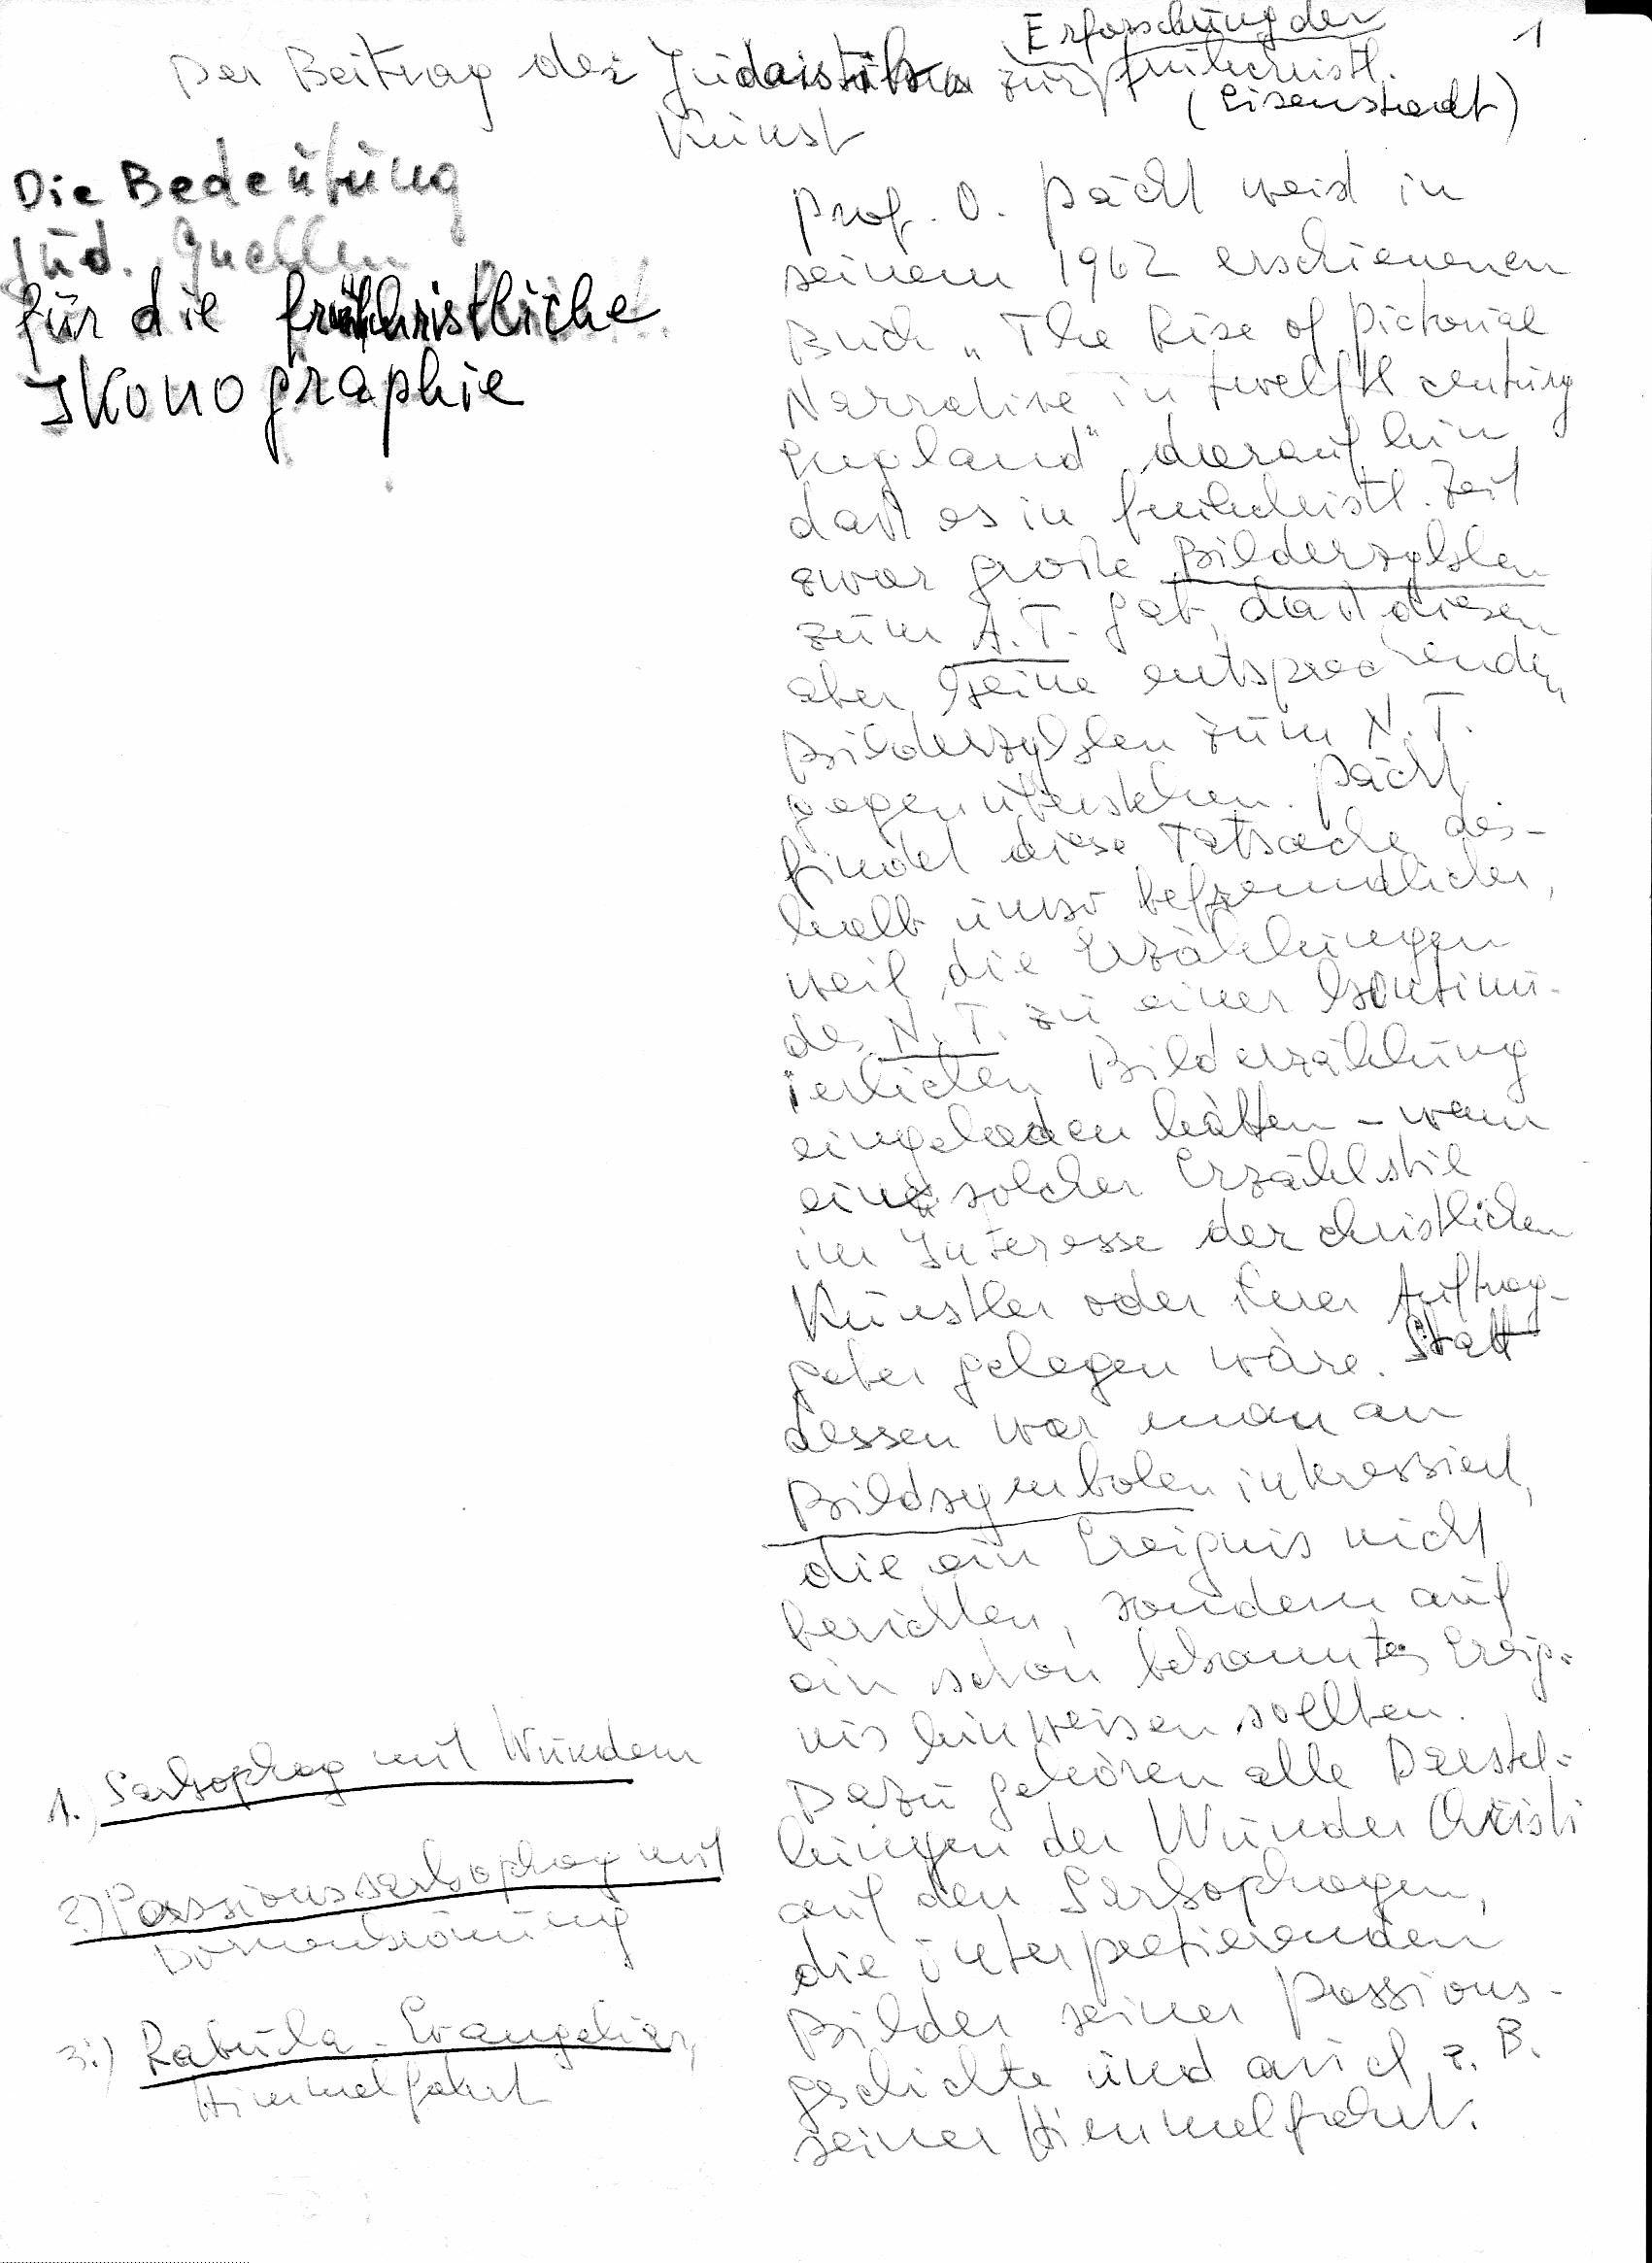 1
Erforschung der
Der Beitrag der Judaistik zur frühchristl.
(Eisenstadt)
Kunst
Die Bedeutung
jüd. Quellen
für die frühchristliche
Ikonographie
Prof. O. Pächt weist in
seinem 1962 erschienenen
Buch „The Rise of Pictorial
Narrative in twelfth century
England" darauf hin,
daß es in frühchristl. Zeit
zwar große Bilderzyklen
zum A.T. gab, daß diesen
aber keine entsprechenden
Bilderzyklen zum N.T.
gegenüberstehen. Pächt
findet diese Tatsache des-
halb umso befremdlicher,
weil die Erzählungen
des N.T. zu einer kontinu-
ierlichen Bilderzählung
eingeladen hätten – wenn
ein solcher Erzählstil
im Interesse der christlichen
Künstler oder ihrer Auftrag-
geber gelegen wäre. Statt
dessen war man an
Bildsymbolen interessiert,
die ein Ereignis nicht
berichten, sondern auf
ein schon bekanntes Ereig-
nis hinweisen sollten.
Dazu gehören alle Darstel-
lungen der Wunder Christi
auf den Sarkophagen,
die interpretierenden
Bilder seiner Passions-
geschichte und auch z. B.
seiner Himmelfahrt.
1.) Sarkophag mit Wundern
2.) Passionssarkophag mit
Dornenkrönung
3.) Rabula-Evangeliar,
Himmelfahrt